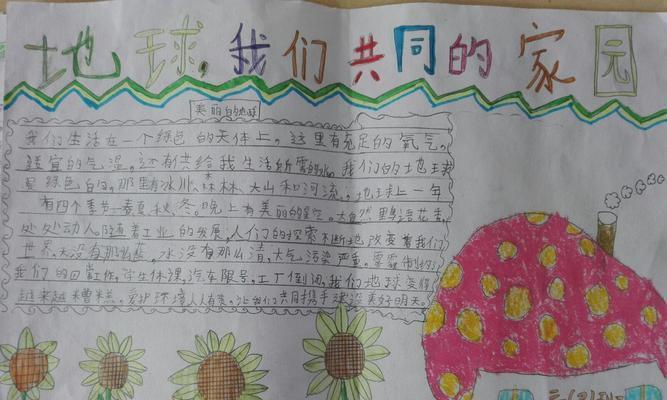 地球，我们共同的家园
美丽的地球
我们生活在一个绿色的天体上。这里有充足的氧气。
适宜的气温。还有供给我生活所需的水。我们的地球
是绿色的，那里有冰川、森林、大山和河流；地球上一年
有四个季节春夏秋、冬。晚上有美丽的星空。大自然里鸟语花香，
处处动人。随着工业的发展，人们的探索不断地改变着我们
世界。天没有那么蓝，水没有那么清，大气污染严重。雾霾制约
我们的日常工作，学生休课，汽车限号，工厂倒闭，我们地球变得
越来越糟糕。爱护环境人人有责，让我们共同携手建设美好明天。